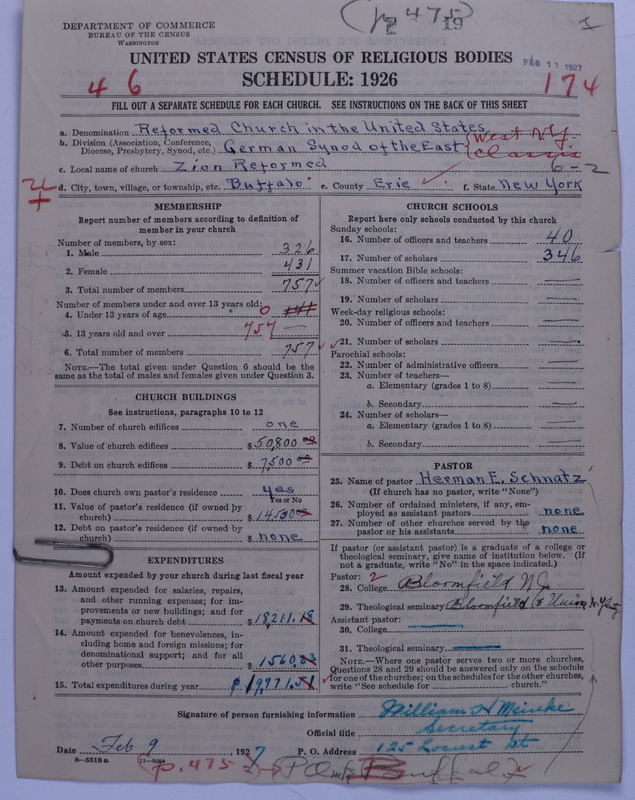 p 475
19
1
DEPARTMENT OF COMMERCE
BUREAU OF THE CENSUS
WASHINGTON
UNITED STATES CENSUS OF RELIGIOUS BODIES
FEB 11 1927
SCHEDULE: 1926
4 6
174
FILL OUT A SEPARATE SCHEDULE FOR EACH CHURCH. SEE INSTRUCTIONS ON THE BACK OF THIS SHEET
a. Denomination Reformed Church in the United States
b. Division (Association, Conference, Diocese, Presbytery, Synod, etc.) German Synod of the East (West N.Y. Classis
c. Local name of church Zion Reformed 6-2
d. City, town, village, or township, etc. Buffalo e. County Erie f. State New York
MEMBERSHIP
Report number of members according to definition of member in your church
Number of members, by sex:
1. Male 326
2. Female 431
3. Total number of members 757
Number of members under and over 13 years old:
4. Under 13 years of age 0
5. 13 years old and over 757
6. Total number of members 757
NOTE.—The total given under Question 6 should be the same as the total of males and females given under Question 3.
CHURCH BUILDINGS
See instructions, paragraphs 10 to 12
7. Number of church edifices one
8. Value of church edifices $50,800 00
9. Debt on church edifices $7,500 00
10. Does church own pastor's residence yes
Yes or No
11. Value of pastor's residence (if owned by church) $14500 00
12. Debt on pastor's residence (if owned by church) $ none
EXPENDITURES
Amount expended by your church during last fiscal year
13. Amount expended for salaries, repairs, and other running expenses; for improvements or new buildings; and for payments on church debt $18,211.18
14. Amount expended for benevolences, including home and foreign missions; for denominational support; and for all other purposes $1560.33
15. Total expenditures during year $19,771.51
CHURCH SCHOOLS
Report here only schools conducted by this church
Sunday schools:
16. Number of officers and teachers 40
17. Number of scholars 346
Summer vacation Bible schools:
18. Number of officers and teachers
19. Number of scholars
Week-day religious schools:
20. Number of officers and teachers
21. Number of scholars
Parochial schools:
22. Number of administrative officers
23. Number of teachers—
a. Elementary (grades 1 to 8)
b. Secondary
24. Number of scholars—
a. Elementary (grades 1 to 8)
b. Secondary
PASTOR
25. Name of pastor Herman E. Schnatz
(If church has no pastor, write "None")
26. Number of ordained ministers, if any, employed as assistant pastors none
27. Number of other churches served by the pastor or his assistants none
If pastor (or assistant pastor) is a graduate of a college or theological seminary, give name of institution below. (If not a graduate, write "No" in the space indicated.)
Pastor: 2
28. College Bloomfield N.J.
29. Theological seminary Bloomfield & Union
Assistant pastor:
30. College
31. Theological seminary
NOTE.—Where one pastor serves two or more churches, Questions 28 and 29 should be answered only on the schedule for one of the churches; on the schedules for the other churches, write "See schedule for ........ church."
Signature of person furnishing information William H Meineke
Official title Secretary
Date Feb 9 1927 P. O. Address 125 Locust St
8-5518a 11-9084
p. 475 Buffalo